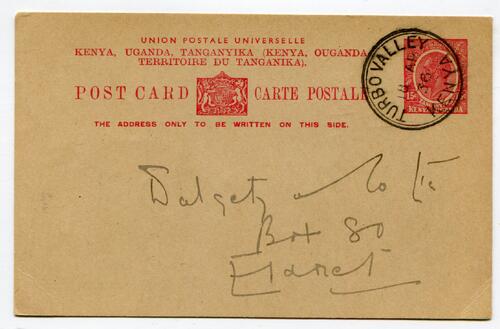 UNION POSTALE UNIVERSELLE
KENYA, UGANDA, TANGANYIKA (KENYA, OUGANDA,
TERRITOIRE DU TANGANIKA).
POST CARD CARTE POSTALE
THE ADDRESS ONLY TO BE WRITTEN ON THIS SIDE.
TURBO VALLEY KENYA
AP
36
15
KENYA UGANDA
Dalgety & Co Ltd
Box 80
Eldoret